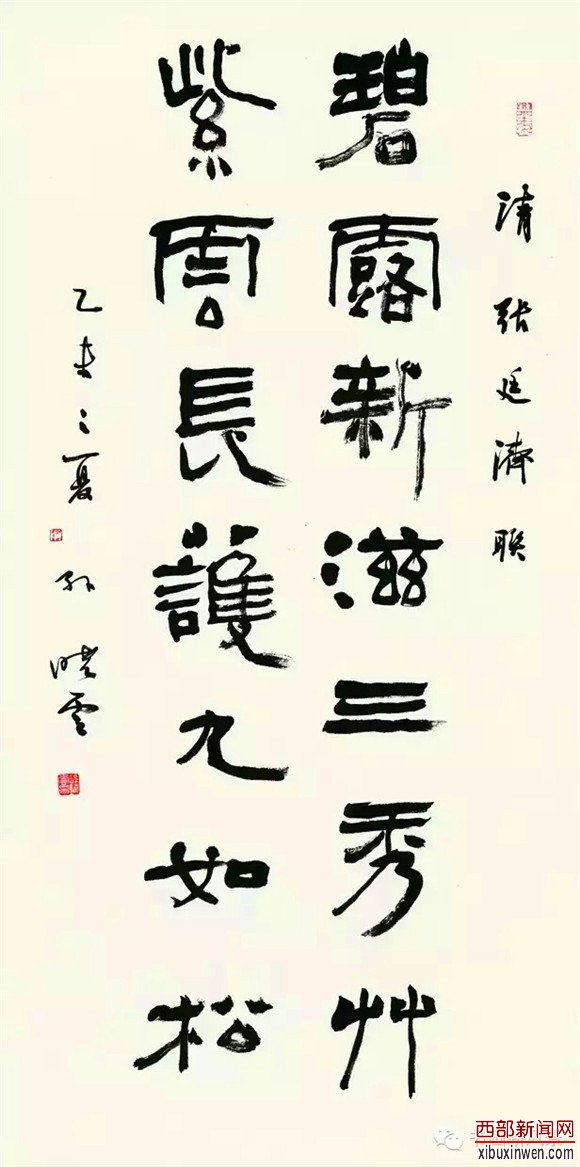 清張廷濟联
碧露新滋三秀艸
紫雲長護九如松
乙未之夏孙晓雲
西部新闻网
xibuxinwen.com